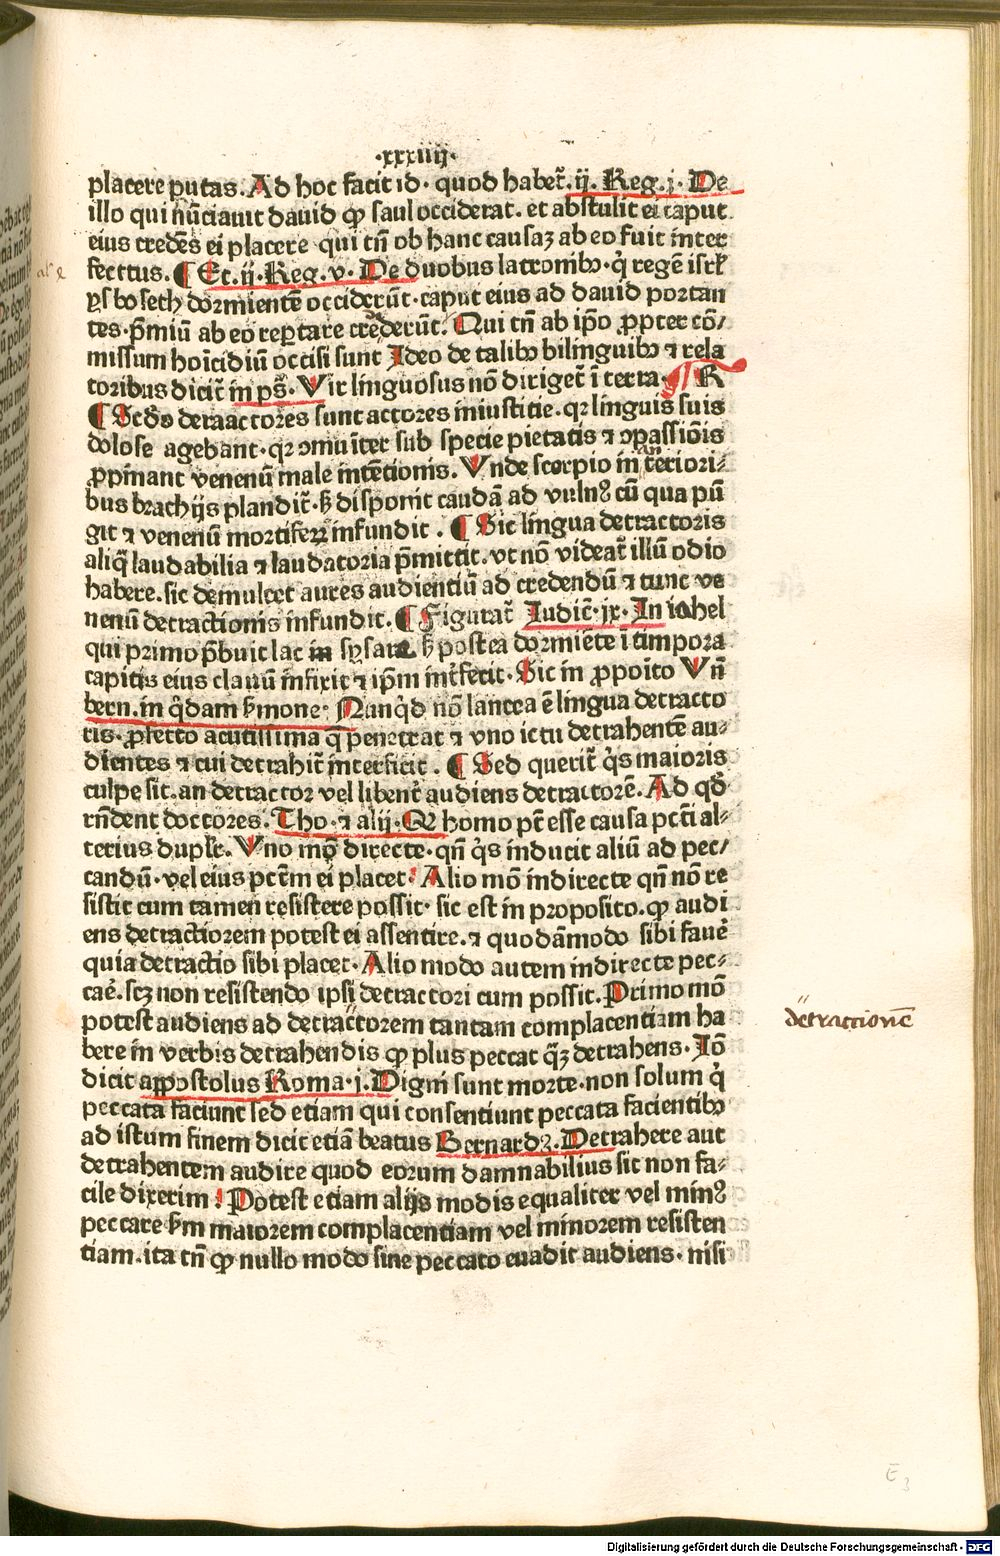 ·xxxiiij·
placere putas. Ad hoc facit id· quod habet̃. ij. Reg. j· De
illo qui nũciauit dauid ꝙ saul occiderat. et abstulit ei caput
eius credẽs ei placere qui tñ ob hanc causaꝫ ab eo fuit inter
fectus. ¶ Et. ij· Reg. v· De duobus latronibꝰ· q̃ regẽ isrl̃
ysboseth dormientẽ occiderũt· caput eius ad dauid portan
tes· p̃miũ ab eo reportare crederũt. Qui tñ ab ip̃o ꝓpter cõ/
missum hoĩcidiũ occisi sunt Ideo de talibꝰ bilinguibꝰ ⁊ rela
toribus dicit̃ in ps̃. Vir linguosus nõ diriget̃ ĩ terra· R
¶ Scdo detractores sunt actores iniusticie. qꝛ linguis suis
dolose agebant· qꝛ ꝯmuniter sub specie pietatis ⁊ ꝯpassiõis
ꝓpinant venenũ male intẽtionis. Vnde scorpio in anteriori⸗
bus brachijs plandit̃· ß disponit caudã ad vulnꝰ cũ qua pũ
git ⁊ venenũ mortiferꝝ infundit . ¶ Sic lingua detractoris
aliq̃ laudabilia ⁊ laudatoria p̃mittit. vt nõ videat̃ illũ odio
habere. sic demulcet aures audientiũ ad credendũ ⁊ tunc ve
nenũ detractionis infundit. ¶ Figurat̃ Iudic̃· ix· In iahel
qui primo p̃buit lac in sysara ß postea dormiẽte ĩ timpora
capitis eius clauũ infixit ⁊ ip̃m int̃fecit· Sic in ꝓpoito Vñ
bern. in q̃dam ßmone· Nunq̃d nõ lancea ẽ lingua detracto
ris· ꝓfecto acutissima q̃ penetrat ⁊ vno ictu detrahentẽ au⸗
dientes ⁊ cui detrahit̃ interficit . ¶ Sed querit̃ q̃s maioris
culpe sit. an detractor vel libent̃ audiens detractorẽ. Ad qď
rñdent doctores. Tho· ⁊ alij· Q homo põt esse causa pcc̃ti al⸗
terius duplr̃. Vno mõ directe· qñ q̃s inducit aliũ ad pec/
candũ· vel eius pctm̃ ei placet· Alio mõ indirecte qñ nõ re
sistit cum tamen resistere possit· sic est in proposito. ꝙ audi
ens detractiorem potest ei assentire. ⁊ quodãmodo sibi faue᷑
quia detractio sibi placet· Alio modo autem indirecte pec⸗
cae᷑. scꝫ non resistendo ipsi detractori cum possit. Primo mõ
potest audiens ad detractorem tantam complacentiam ha
bere in verbis detrahendis ꝙ plus peccat q̃ꝫ detrahens· Iõ
dicit appostolus Roma· j. Digni sunt morte· non solum q̃
peccata faciunt sed etiam qui consentiunt peccata facientibꝰ
ad istum finem dicit etiã beatus Bernardꝰ. Detrahere aut
detrahentem audire quod eorum damnabilius sit non fa⸗
cile dixerim ! Potest etiam alijs modis equaliter vel minꝰ
peccare ßm maiorem complacentiam vel minorem resisten
tiam. ita tñ ꝙ nullo modo sine peccato euadit audiens· nisi
detractionẽ
E 3
Digitalisierung gefördert durch die Deutsche Forschungsgemeinschaft · DFG